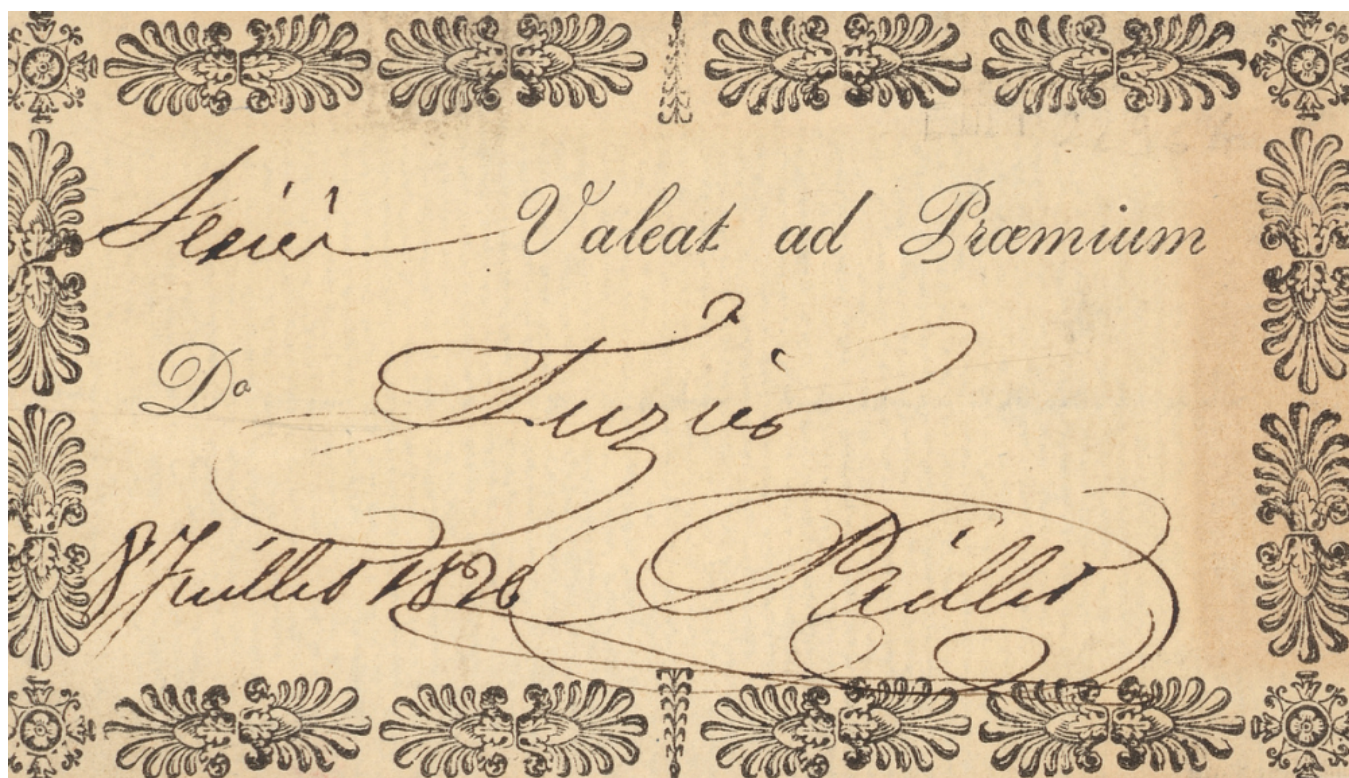 Valeat ad Præmium
Do Luziés
8 Juillet 1826 Paillet